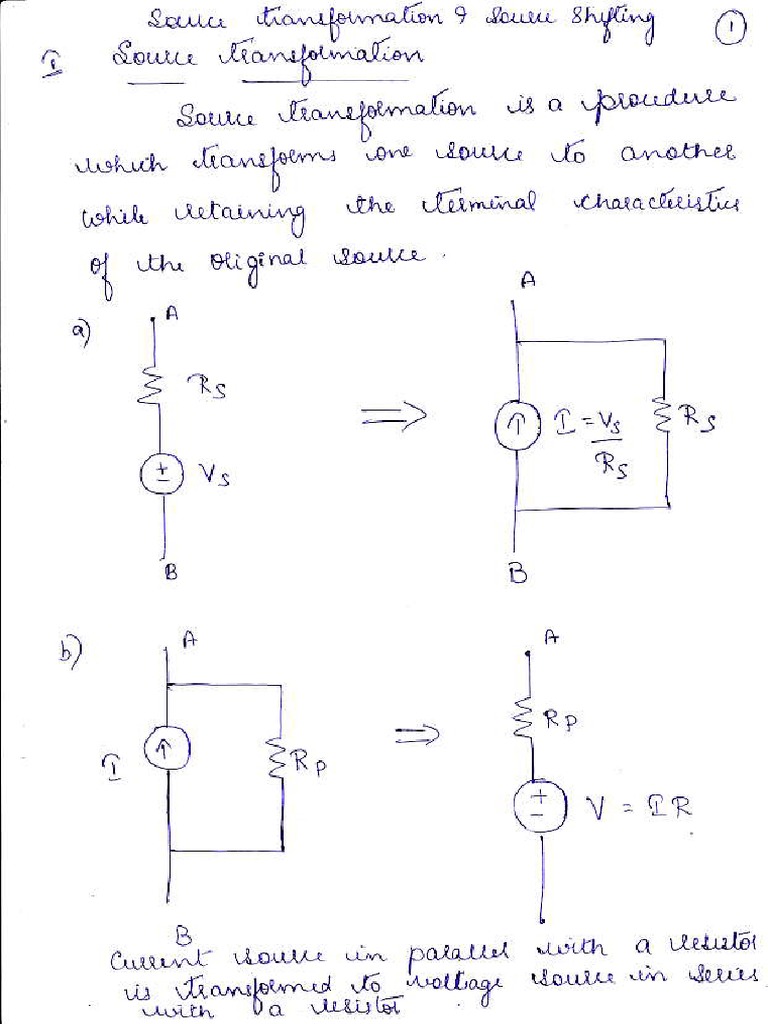 Source transformation & Source Shifting
1
I Source transformation
Source transformation is a procedure
which transforms one source to another
while retaining the terminal characteristics
of the original source.
a)
A
RS
± VS
B
⇒
A
↑ I = VS/RS
RS
B
b)
A
I ↑
RP
B
⇒
A
RP
+ − V = IR
Current source in parallel with a resistor
is transformed to voltage source in series
with a resistor